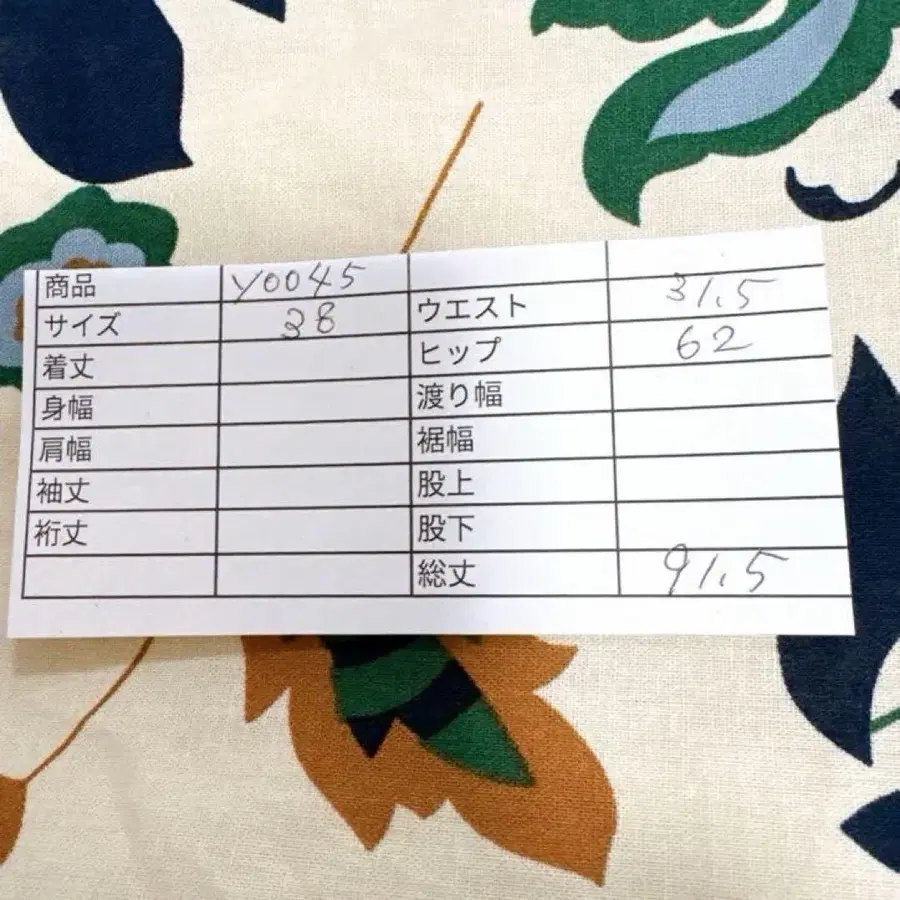 商品 Y0045
サイズ 38 ウエスト 31.5
着丈 ヒップ 62
身幅 渡り幅
肩幅 裾幅
袖丈 股上
裄丈 股下
総丈 91.5